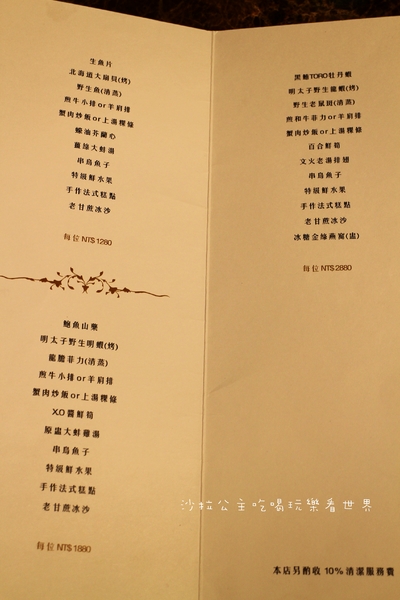 生魚片
北海道大扇貝(烤)
野生魚(清蒸)
煎牛小排or羊肩排
蟹肉炒飯or上湯粿條
蠔油芥蘭心
薑絲大蚌湯
串烏魚子
特級鮮水果
手作法式糕點
老甘蔗冰沙
每位 NT$1280
鮑魚山藥
明太子野生明蝦(烤)
龍膽菲力(清蒸)
煎牛小排or羊肩排
蟹肉炒飯or上湯粿條
X.O醬鮮筍
原盅大蚌雞湯
串烏魚子
特級鮮水果
手作法式糕點
老甘蔗冰沙
每位 NT$1880
黑鮪TORO牡丹蝦
明太子野生龍蝦(烤)
野生老鼠斑(清蒸)
煎和牛菲力or羊肩排
蟹肉炒飯or上湯粿條
百合鮮筍
文火老湯排翅
串烏魚子
特級鮮水果
手作法式糕點
老甘蔗冰沙
冰糖金絲燕窩(盅)
每位 NT$2880
沙拉公主吃喝玩樂看世界
本店另酌收 10% 清潔服務費